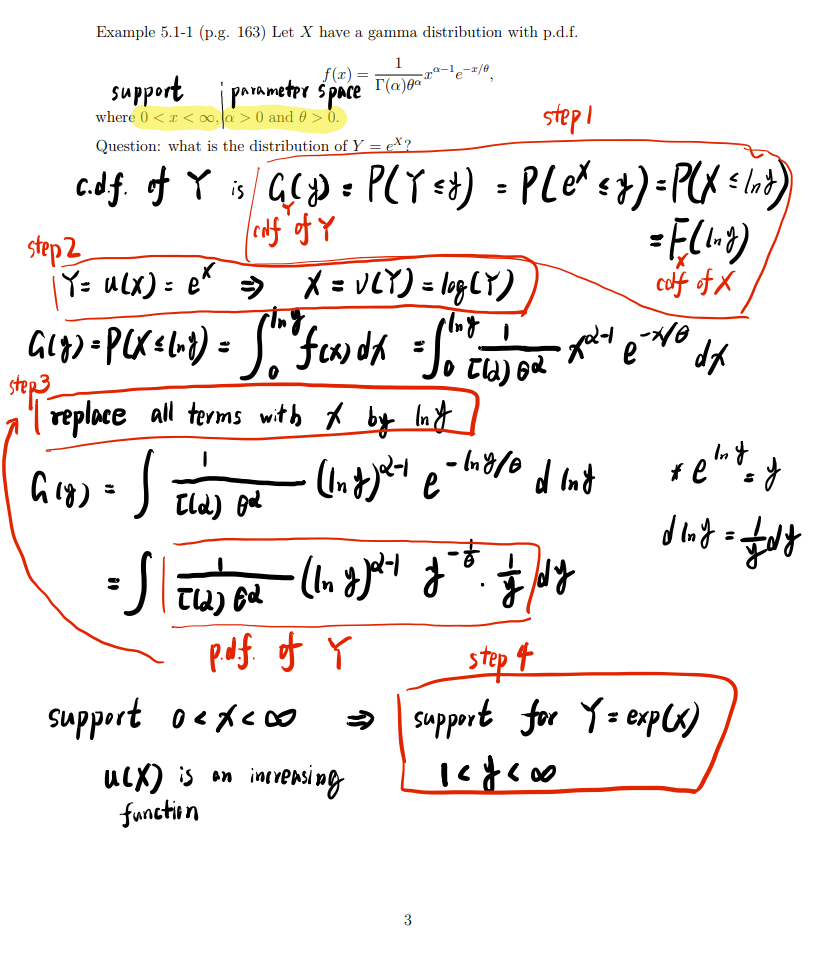 Example 5.1-1 (p.g. 163) Let X have a gamma distribution with p.d.f.
f(x) = 1/(Γ(α)θ^α) x^(α−1) e^(−x/θ),
support | parameter space
where 0 < x < ∞, α > 0 and θ > 0.
step 1
Question: what is the distribution of Y = e^X?
c.d.f. of Y is G_Y(y) = P(Y ≤ y) = P(e^X ≤ y) = P(X ≤ ln y)
cdf of Y
= F_X(ln y)
cdf of X
step 2
Y = u(X) = e^X ⇒ X = v(Y) = log(Y)
G(y) = P(X ≤ ln y) = ∫_0^(ln y) f(x) dx = ∫_0^(ln y) 1/(Γ(α) θ^α) x^(α-1) e^(-x/θ) dx
step 3
replace all terms with x by ln y
G(y) = ∫ 1/(Γ(α) θ^α) (ln y)^(α-1) e^(-ln y/θ) d ln y
* e^(ln y) = y
d ln y = 1/y dy
= ∫ 1/(Γ(α) θ^α) (ln y)^(α-1) y^(-1/θ) · 1/y dy
p.d.f. of Y
step 4
support 0 < x < ∞ ⇒ support for Y = exp(X)
1 < y < ∞
u(X) is an increasing
function
3